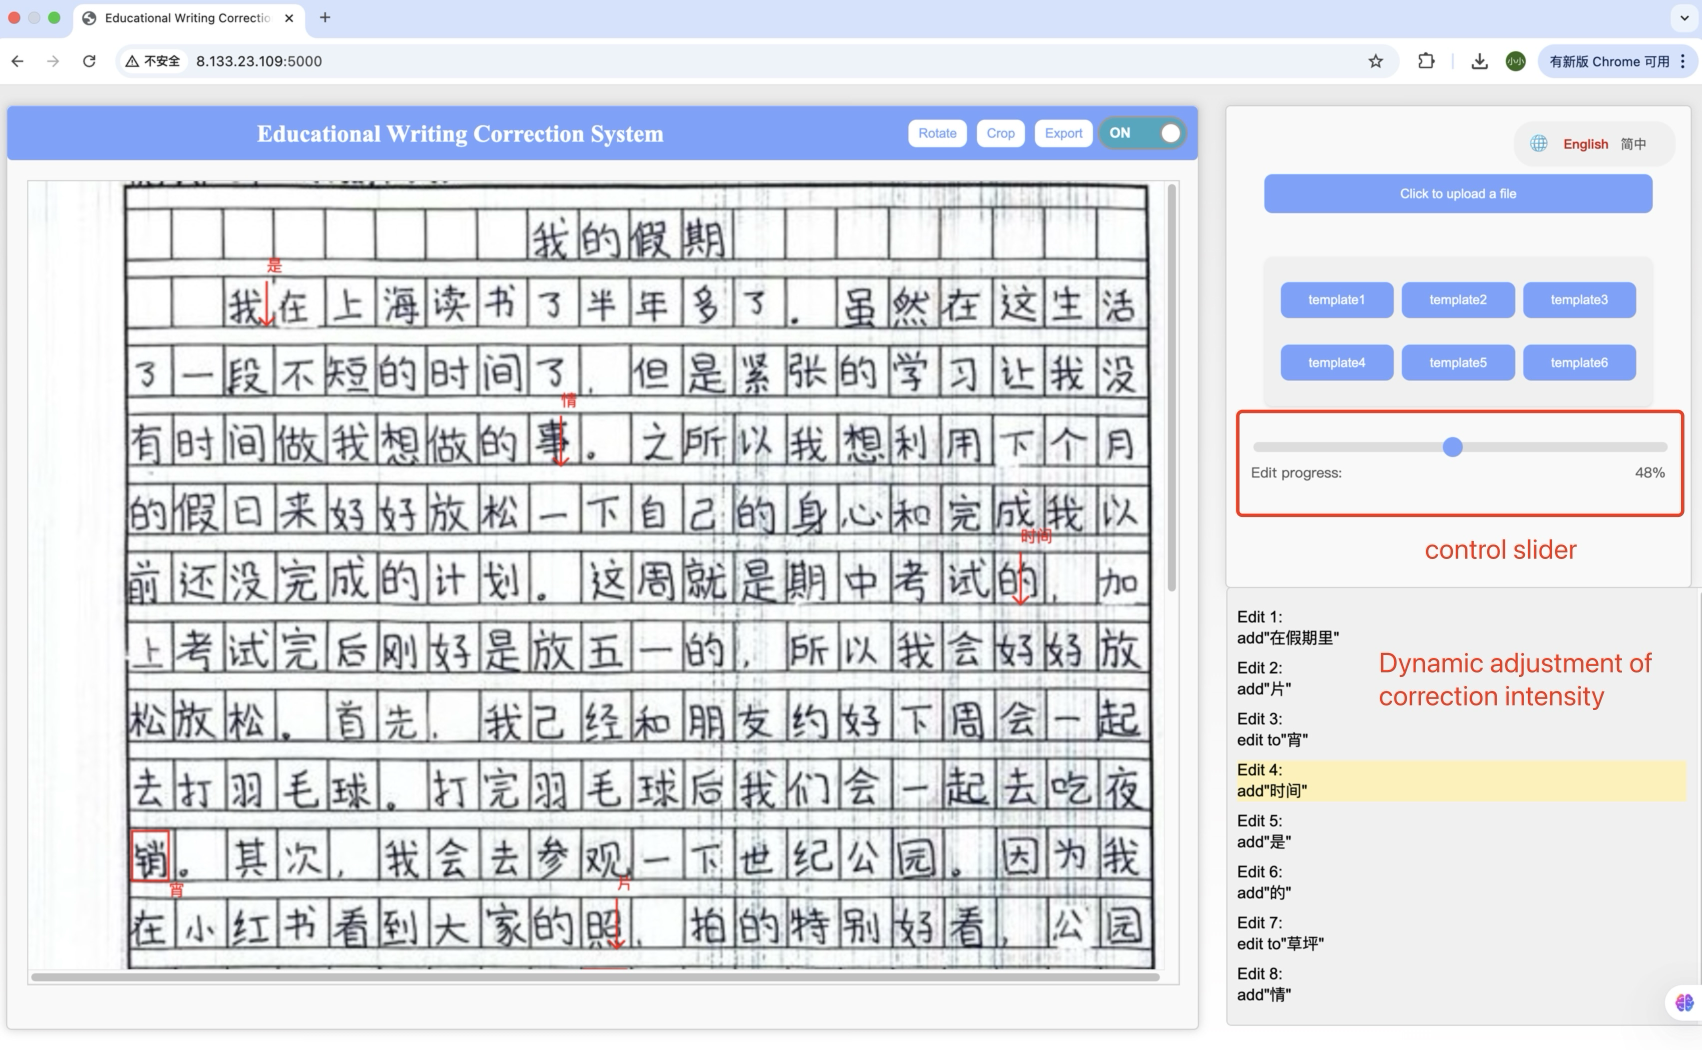 Educational Writing Correctio
不安全 8.133.23.109:5000
有新版 Chrome 可用
Educational Writing Correction System
Rotate
Crop
Export
ON
我的假期
是
我在上海读书了半年多了.虽然在这生活
了一段不短的时间了,但是紧张的学习让我没
情
有时间做我想做的事。之所以我想利用下个月
的假日来好好放松一下自己的身心和完成我以
时间
前还没完成的计划。这周就是期中考试的,加
上考试完后刚好是放五一的,所以我会好好放
松放松。首先,我己经和朋友约好下周会一起
去打羽毛球。打完羽毛球后我们会一起去吃夜
销。其次,我会去参观一下世纪公园。因为我
宵
片
在小红书看到大家的照,拍的特别好看,公园
English 简中
Click to upload a file
template1
template2
template3
template4
template5
template6
Edit progress:
48%
control slider
Dynamic adjustment of
correction intensity
Edit 1:
add"在假期里"
Edit 2:
add"片"
Edit 3:
edit to"宵"
Edit 4:
add"时间"
Edit 5:
add"是"
Edit 6:
add"的"
Edit 7:
edit to"草坪"
Edit 8:
add"情"